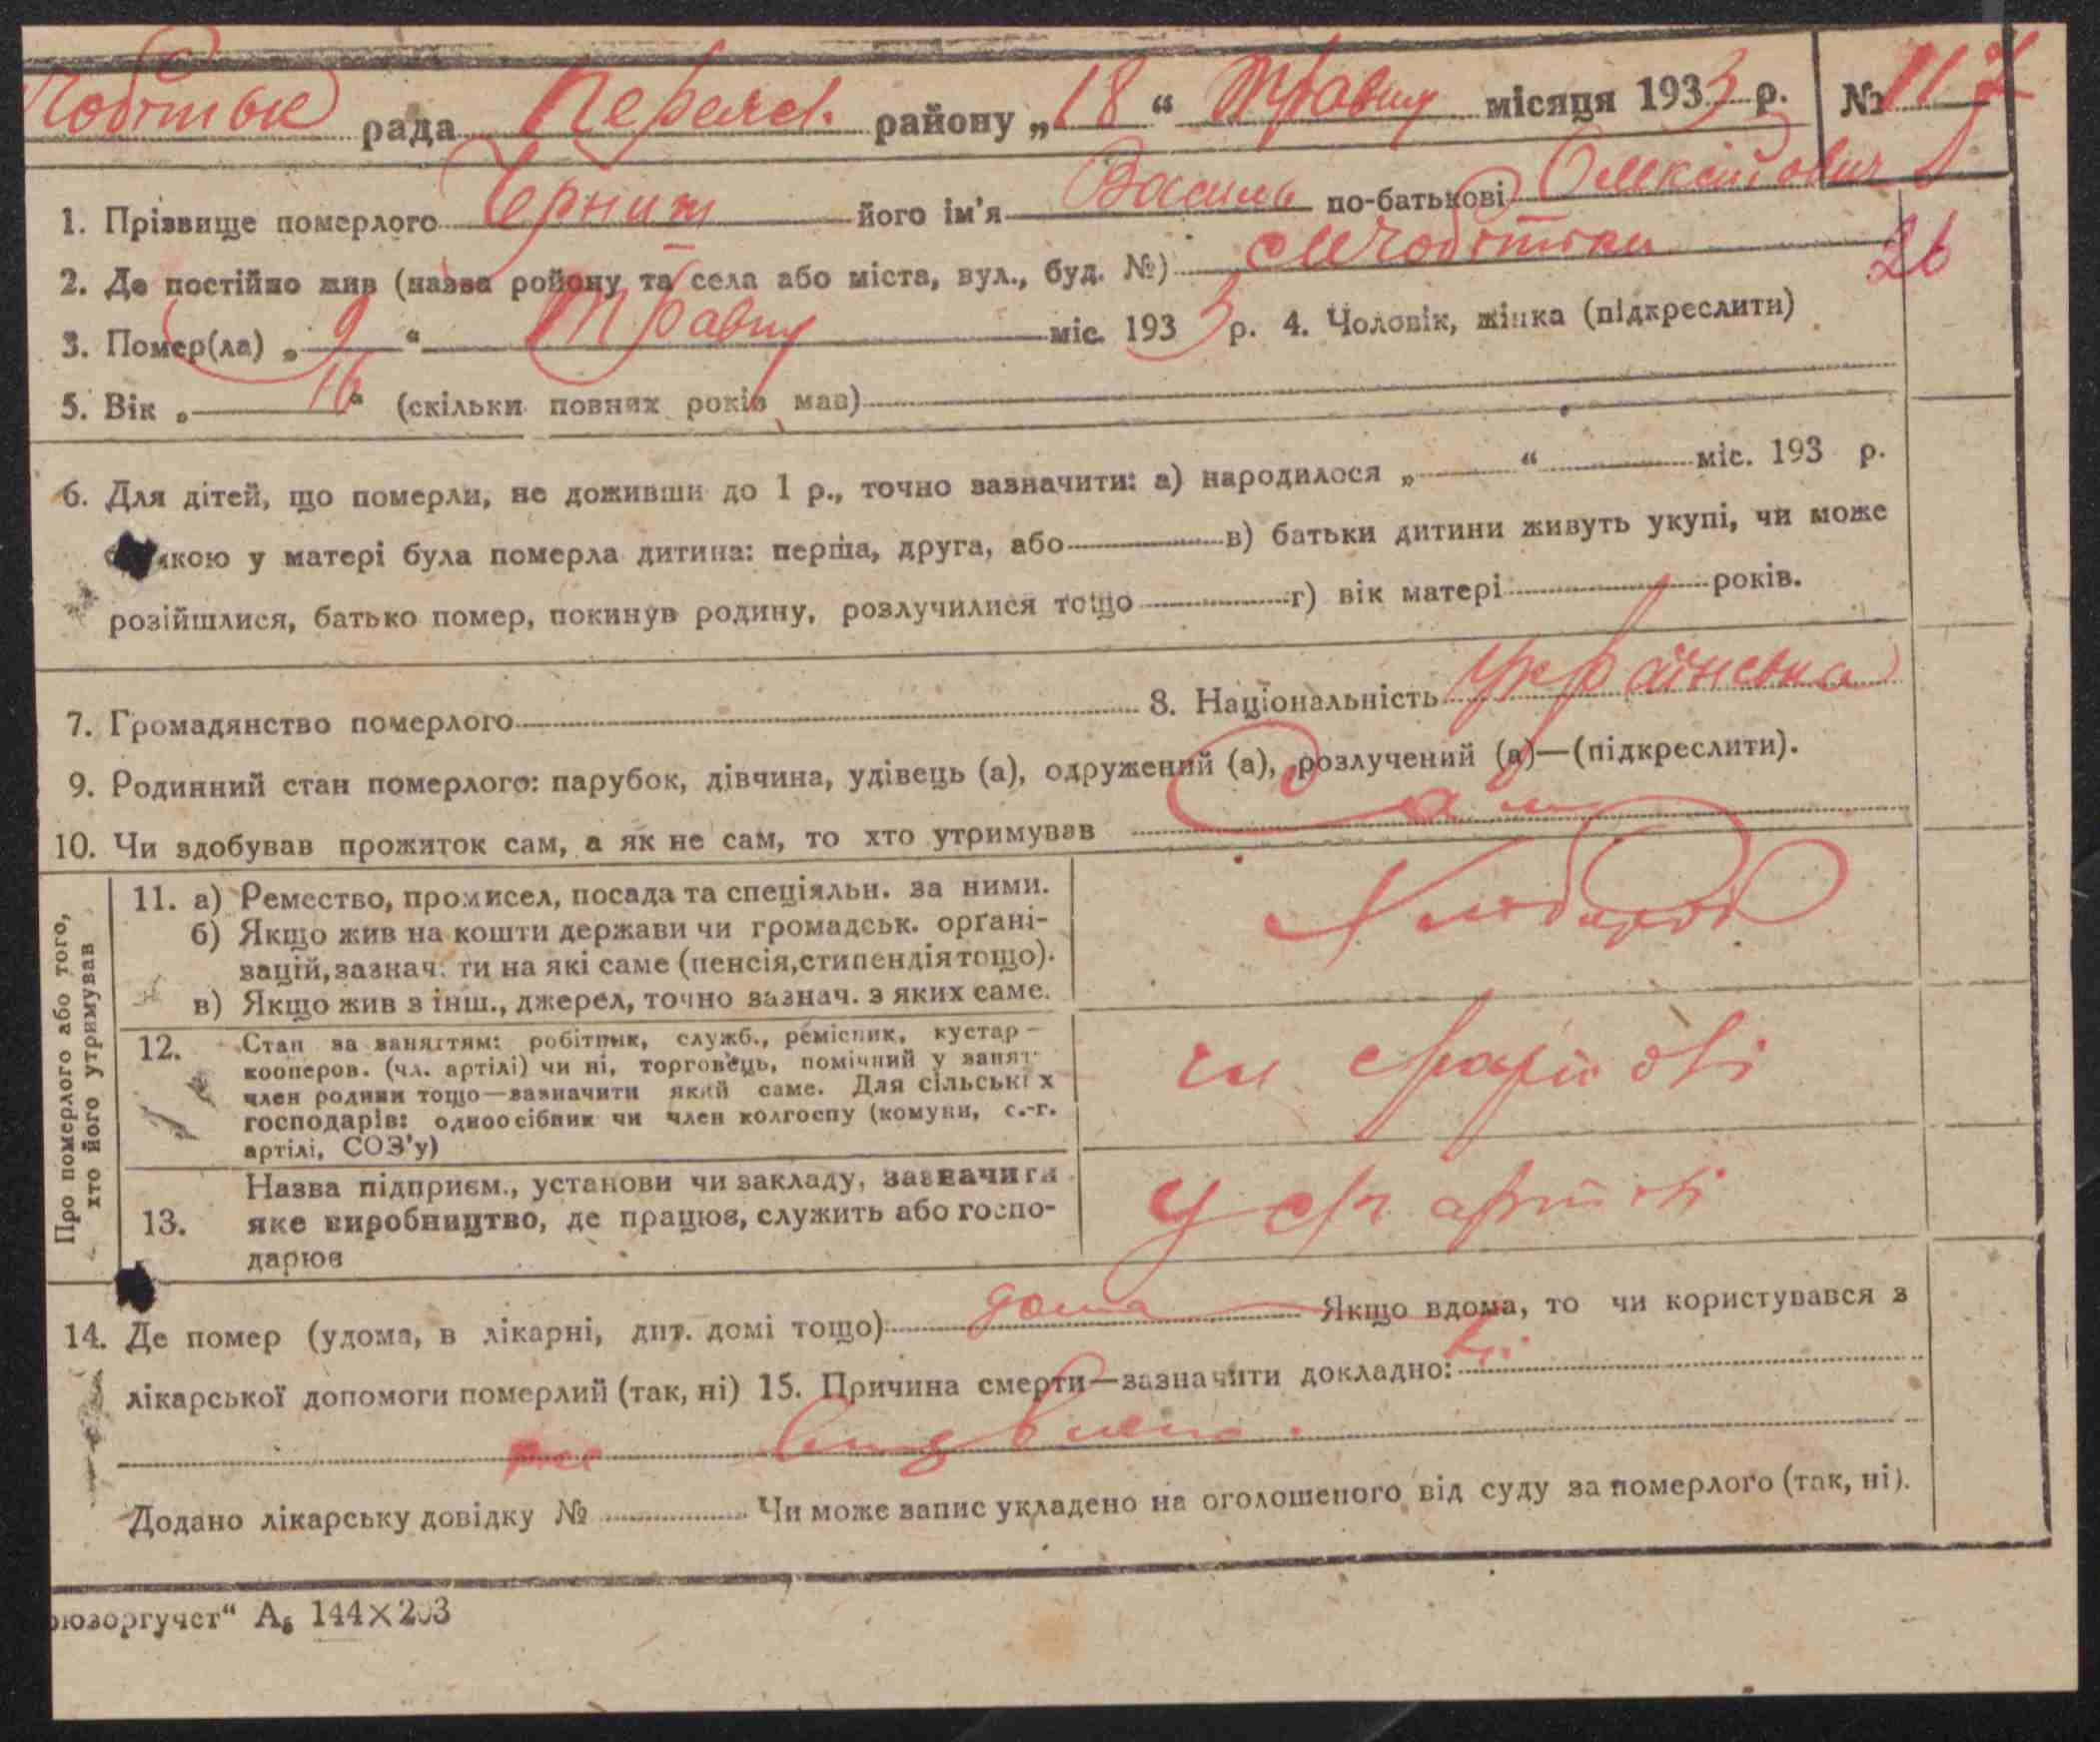 Чобітьк рада Переясл. району „18“ Травня місяця 1933 р. № 117
1. Прізвище померлого його ім'я Василь по-батькові Олексійович
2. Де постійно жив (назва ройону та села або міста, вул., буд. №) Чобітьки
26
3. Помер(ла) „9“ Травня міс. 1933 р. 4. Чоловік, жінка (підкреслити)
5. Вік „16“ (скільки повних років мав)
6. Для дітей, що померли, не доживши до 1 р., точно зазначити: а) народилося „ “ міс. 193 р.
якою у матері була померла дитина: перша, друга, або в) батьки дитини живуть укупі, чи може
розійшлися, батько помер, покинув родину, розлучилися тощо г) вік матері років.
7. Громадянство померлого 8. Національність українська
9. Родинний стан померлого: парубок, дівчина, удівець (а), одружений (а), розлучений (а)—(підкреслити).
10. Чи здобував прожиток сам, а як не сам, то хто утримував Сам
Про померлого або того,
хто його утримував
11. а) Ремество, промисел, посада та спеціяльн. за ними.
б) Якщо жив на кошти держави чи громадськ. орґані-
зацій, зазнач. ти на які саме (пенсія, стипендія тощо).
в) Якщо жив з інш., джерел, точно зазнач. з яких саме.
Хлібороб
12. Стан за заняттям: робітник, служб., ремісник, кустар —
кооперов. (чл. артілі) чи ні, торговець, помічний у занят
член родини тощо—зазначити який саме. Для сільських
господарів: одноосібник чи член колгоспу (комуни, с.-г.
артілі, СОЗ'у)
чл артілі
13. Назва підприєм., установи чи закладу, зазначити
яке виробництво, де працює, служить або госпо-
дарює
У артілі
14. Де помер (удома, в лікарні, дит. домі тощо) дома Якщо вдома, то чи користувався з
лікарської допомоги померлий (так, ні) 15. Причина смерти—зазначити докладно: ні
Додано лікарську довідку № Чи може запис укладено на оголошеного від суду за померлого (так, ні).
юзоргучет“ А₅ 144×203